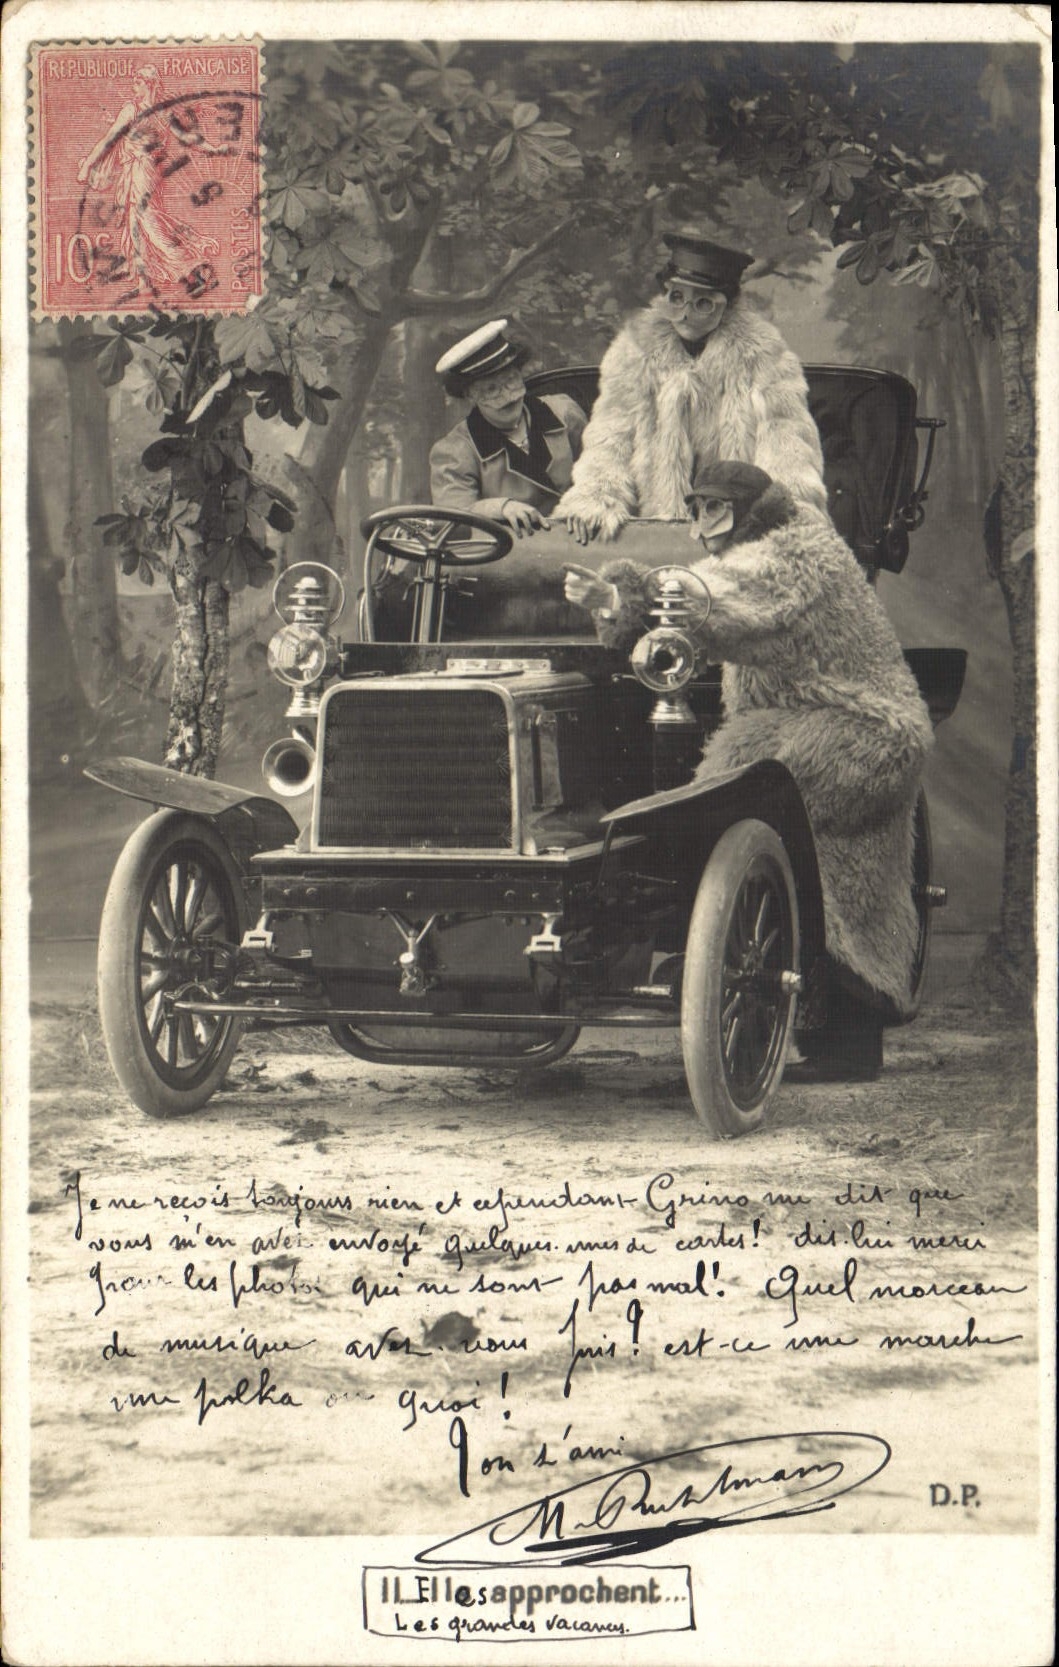 REPUBLIQUE FRANÇAISE
10c
POSTES
Je ne reçois toujours rien et cependant Grino me dit que
vous m'en avez envoyé quelques-unes de cartes! dis-lui merci
pour les photos qui ne sont pas mal! Quel morceau
de musique avez-vous pris? est-ce une marche
une polka ou quoi!
Ton t'ami
M.
D.P.
Elles approchent...
Les grandes vacances.